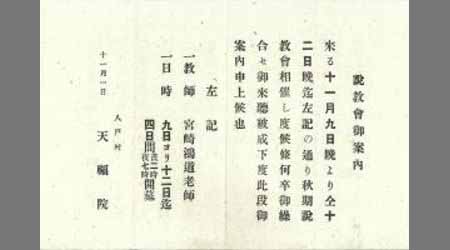 說教會御案內
来る十一月九日晚より仝十
二日晚迄左記の通り秋期說
教會相催し度候條何卒御繰
合せ御来聽被成下度此段御
案內申上候也
左記
一教師 宮崎鴻道老師
一日時 九日ヨリ十二日迄
四日間晝二時夜七時開筵
十一月一日
八戶村
天福院